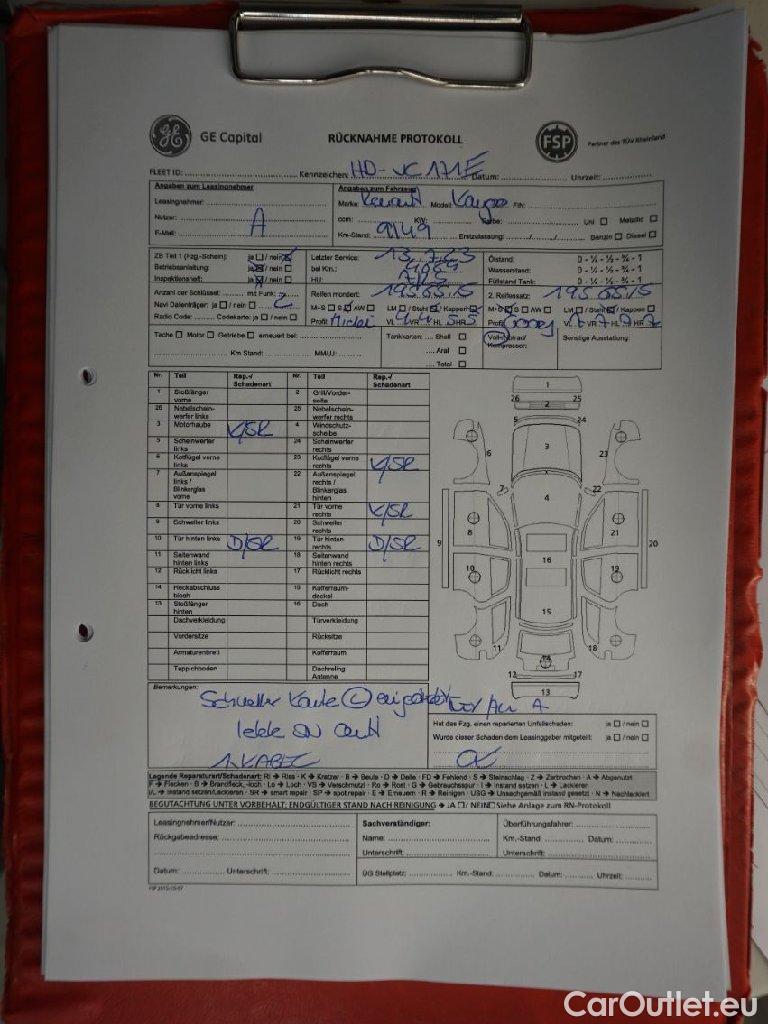 GE Capital
RÜCKNAHME PROTOKOLL
FSP
Partner des TÜV Rheinland
FLEET ID: Kennzeichen: HD-JC171E Datum: Uhrzeit:
Angaben zum Leasingnehmer
Angaben zum Fahrzeug
Leasingnehmer:
Marke: Renault Modell: FIN:
Nutzer: A
ccm: KW: Farbe: Uni Metallic
E-Mail:
Km-Stand: Erstzulassung: Benzin Diesel
ZB Teil 1 (Fzg.-Schein): ja / nein
Letzter Service:
Ölstand: 0 - ¼ - ½ - ¾ - 1
Betriebsanleitung: ja / nein
bei Km.:
Wasserstand: 0 - ¼ - ½ - ¾ - 1
Inspektionsheft: ja / nein
HU:
Füllstand Tank: 0 - ¼ - ½ - ¾ - 1
Anzahl der Schlüssel: mit Funk: 2
Reifen montiert: 1956515
2. Reifensatz: 1956515
Navi Datenträger: ja / nein
M+S S AW LM / Stahl / Kappen
M+S S AW LM / Stahl / Kappen
Radio Code: Codekarte: ja / nein
Profil VL VR HL HR
Profil VL VR HL HR
Tacho Motor Getriebe erneuert bei:
Tankkarten: Shell
Aral
Total
Voll-
Sonstige Ausstattung:
Km Stand: MM/JJ:
Nr. Teil Rep.-/ Schadenart Nr. Teil Rep.-/ Schadenart
1 Stoßfänger vorne 2 Grill/Vorderseite
26 Nebelscheinwerfer links 25 Nebelscheinwerfer rechts
3 Motorhaube K/SR 4 Windschutzscheibe
5 Scheinwerfer links 24 Scheinwerfer rechts
6 Kotflügel vorne links 23 Kotflügel vorne rechts K/SR
7 Außenspiegel links / Blinkerglas vorne 22 Außenspiegel rechts / Blinkerglas hinten
8 Tür vorne links 21 Tür vorne rechts K/SR
9 Schweller links 20 Schweller rechts
10 Tür hinten links D/SR 19 Tür hinten rechts D/SR
11 Seitenwand hinten links 18 Seitenwand hinten rechts
12 Rücklicht links 17 Rücklicht rechts
14 Heckabschluss blech 15 Kofferraumdeckel
13 Stoßfänger hinten 16 Dach
Dachverkleidung Türverkleidung
Vordersitze Rücksitze
Armaturenbrett Kofferraum
Teppichboden Dachreling Antenne
1
26 2 25
5 24
6 3 23
7 22
4
9 8 21 20
16
10 19
15
11 18
14
12 17
13
Bemerkungen:
Hat das Fzg. einen reparierten Unfallschaden: ja / nein
Wurde dieser Schaden dem Leasinggeber mitgeteilt: ja / nein
1.KABEL
Legende Reparaturart/Schadenart: RI → Riss · K → Kratzer · B → Beule · D → Delle · FD → Fehlend · S → Steinschlag · Z → Zerbrochen · A → Abgenutzt
F → Flecken · B → Brandfleck,-loch · Lo → Loch · VS → Verschmutzt · Ro → Rost · G → Gebrauchsspur · I → instand setzen · L → Lackieren
IL → instand setzen/Lackieren · SR → smart repair · SP → spotrepair · E → Erneuern · R → Reinigen · USG → Unsachgemäß instand gesetzt · N → Nachlackiert
BEGUTACHTUNG UNTER VORBEHALT, ENDGÜLTIGER STAND NACH REINIGUNG → JA / NEIN Siehe Anlage zum RN-Protokoll
Leasingnehmer/Nutzer:
Sachverständiger:
Überführungsfahrer:
Rückgabeadresse:
Name:
Km.-Stand: Datum:
Unterschrift:
Unterschrift:
Datum: Unterschrift:
ÜG Stellplatz: Km.-Stand: Datum: Uhrzeit:
CarOutlet.eu